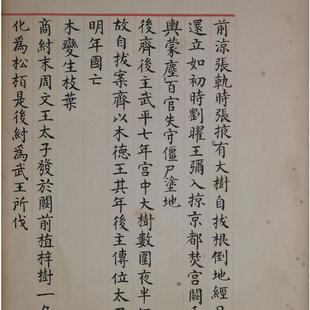 前涼張軌時張掖有大樹自拔根倒地經
還立如初時劉曜王彌入掠京都焚宮闕
輿蒙塵百官失守僵尸塗地
後齊後主武平七年宮中大樹數圍夜半
故自拔案齊以木德王其年後主傳位太
明年國亡
木變生枝葉
商紂末周文王太子發於闕前植梓樹一
化為松柏是後紂為武王所伐